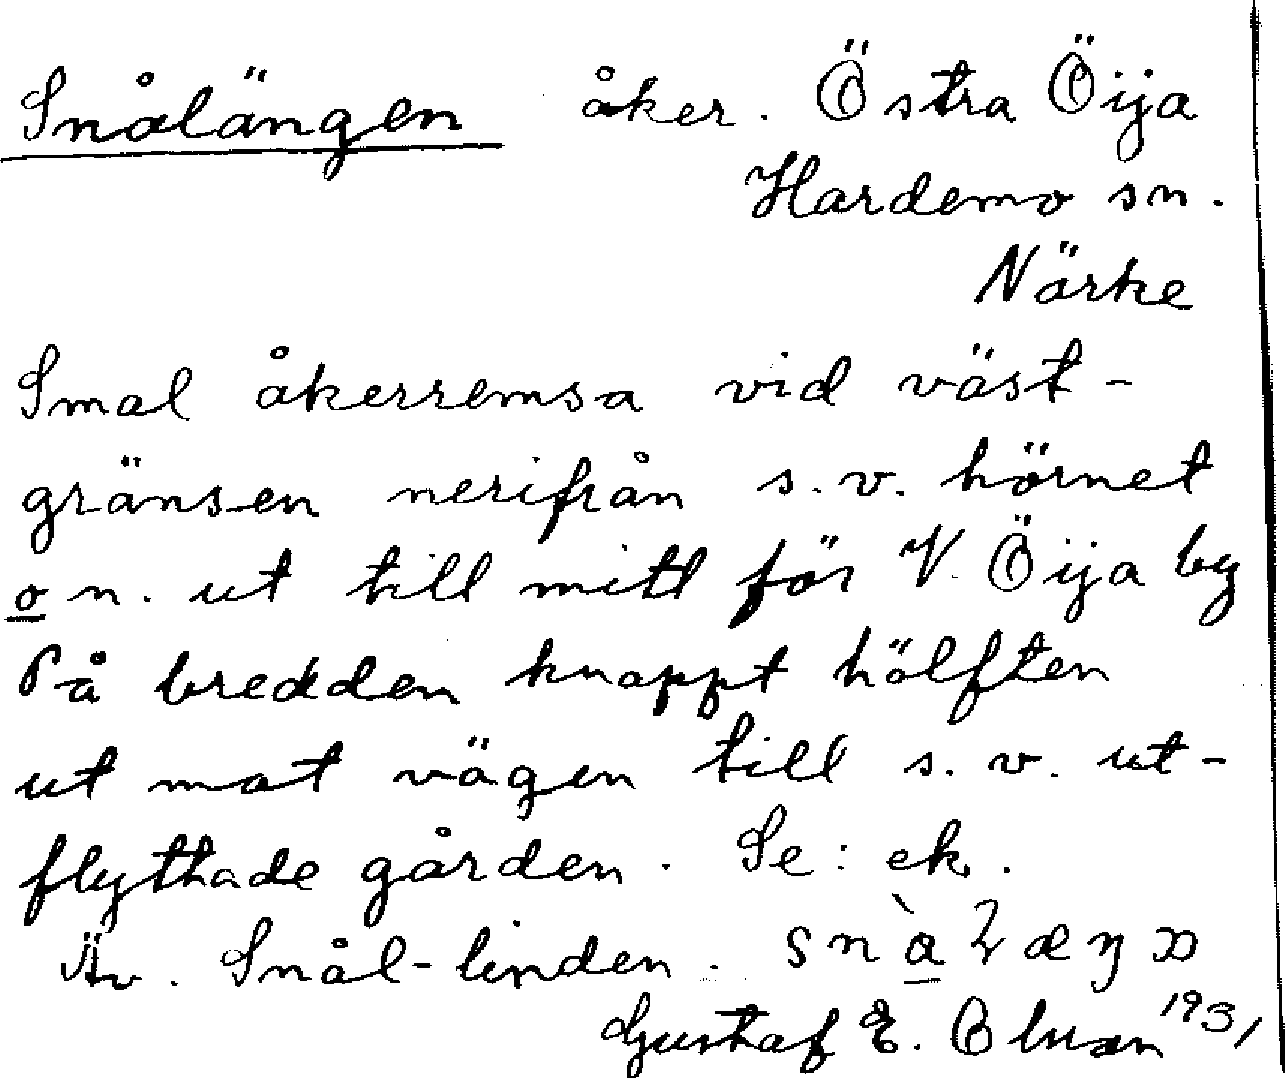 Snålängen åker. Östra Öija
Hardemo sn.
Närke
Smal åkerremsa vid väst-
gränsen nerifrån s.v. hörnet
o n. ut till mitt för V. Öija by
På bredden knappt hälften
ut mot vägen till s.v. ut-
flyttade gården. Se: ek.
Äv. Snål-linden.
Gustaf E. 1931